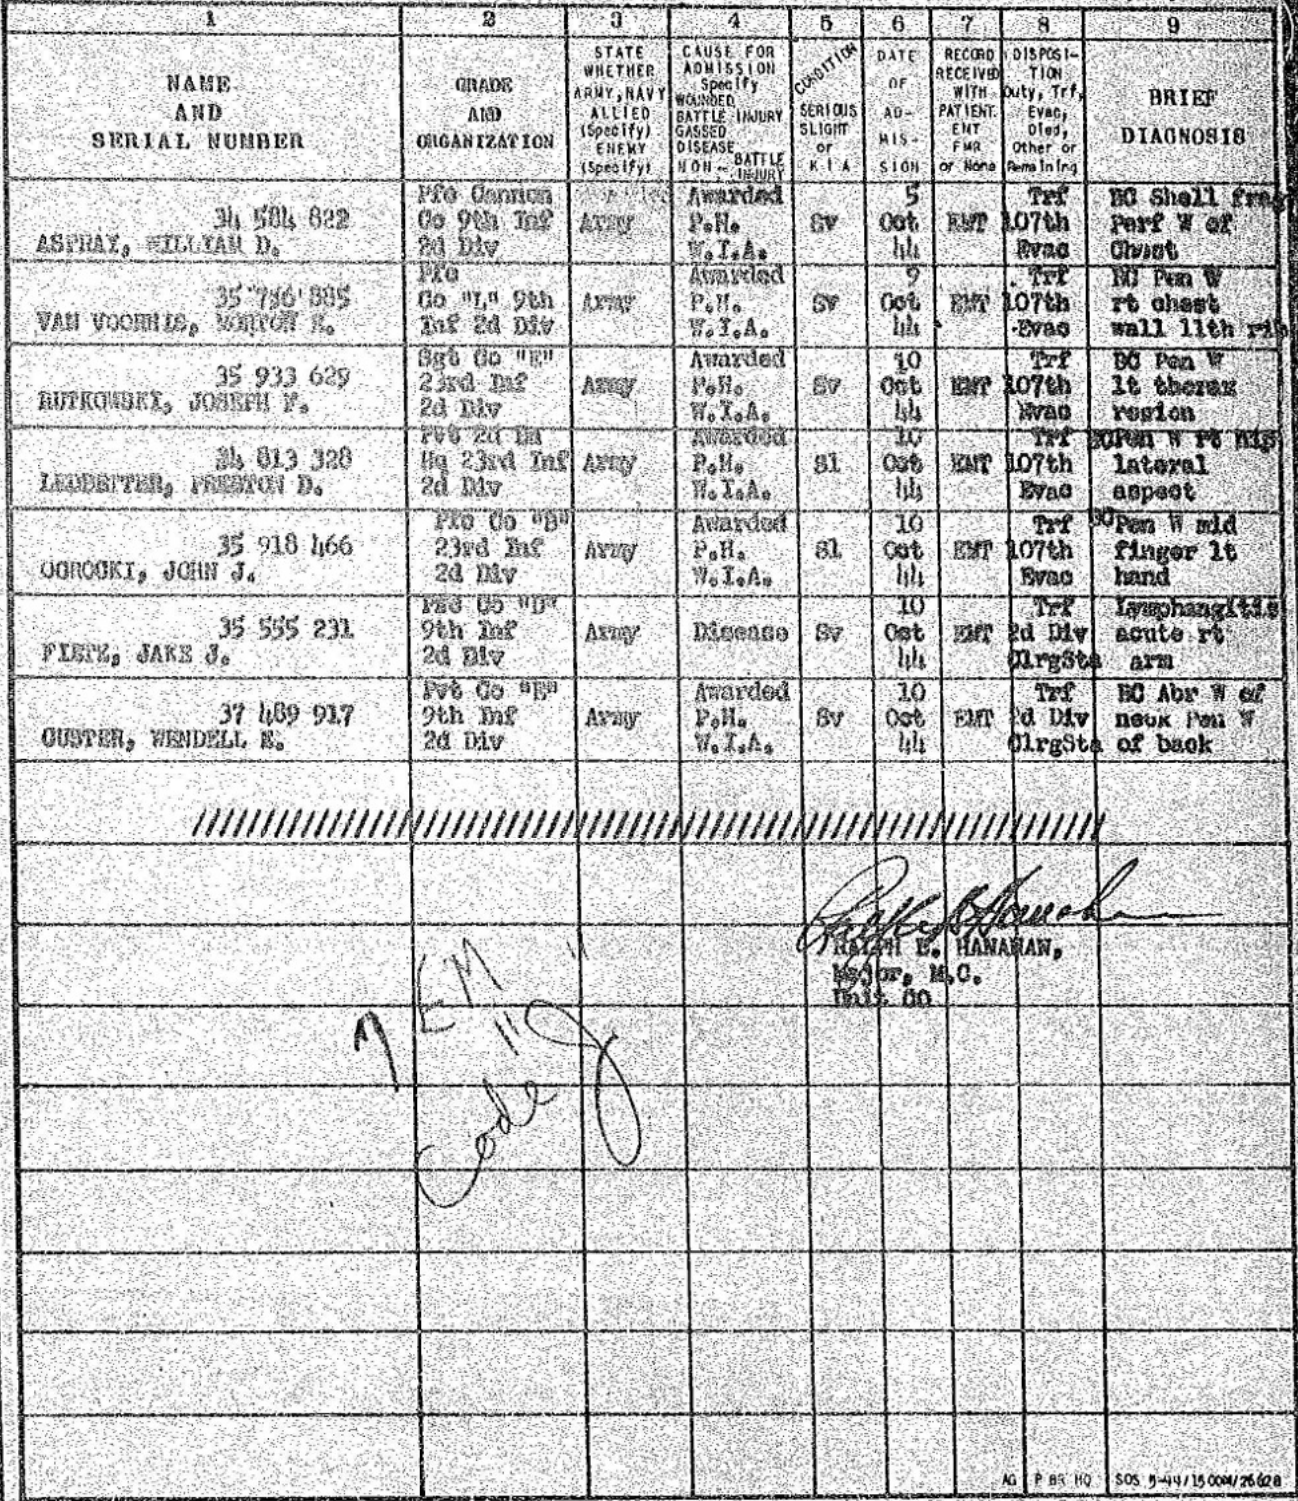 1 2 3 4 5 6 7 8 9
NAME
AND
SERIAL NUMBER
GRADE
AND
ORGANIZATION
STATE
WHETHER
ARMY, NAVY
ALLIED
(Specify)
ENEMY
(Specify)
CAUSE FOR
ADMISSION
Specify
WOUNDED
BATTLE INJURY
GASSED
DISEASE
NON - BATTLE
INJURY
CONDITION
SERIOUS
SLIGHT
or
K I A
DATE
OF
AD-
MIS-
SION
RECORD
RECEIVED
WITH
PATIENT.
EMT
FMR
or None
DISPOSI-
TION
Duty, Trf,
Evac,
Died,
Other or
Remaining
BRIEF
DIAGNOSIS
34 584 822
WILLIAM D.
Pfc Cannon
Co 9th Inf
2d Div
Army
Awarded
P.H.
W.I.A.
Sv
5
Oct
44
EMT
Trf
107th
Evac
BC Shell frag
Perf W of
Chest
35 786 885
VAN VOORHIS, MORTON E.
Pfc
Co "L" 9th
Inf 2d Div
Army
Awarded
P.H.
W.I.A.
Sv
9
Oct
44
EMT
Trf
107th
Evac
BC Pen W
rt chest
wall 11th rib
35 933 629
RUTKOWSKI, JOSEPH F.
Sgt Co "E"
23rd Inf
2d Div
Army
Awarded
P.H.
W.I.A.
Sv
10
Oct
44
EMT
Trf
107th
Evac
BC Pen W
lt thorax
region
34 813 328
LEDBETTER, PRESTON D.
Pvt 2d Bn
Hq 23rd Inf
2d Div
Army
Awarded
P.H.
W.I.A.
Sl
10
Oct
44
EMT
Trf
107th
Evac
BC Pen W rt hip
lateral
aspect
35 918 466
JOHN J.
Pfc Co "B"
23rd Inf
2d Div
Army
Awarded
P.H.
W.I.A.
Sl
10
Oct
44
EMT
Trf
107th
Evac
BC Pen W mid
finger lt
hand
35 555 231
JAKE J.
Co "D"
9th Inf
2d Div
Army
Disease
Sv
10
Oct
44
EMT
Trf
2d Div
ClrgSta
Lymphangitis
acute rt
arm
37 489 917
CUSTER, WENDELL E.
Pvt Co "E"
9th Inf
2d Div
Army
Awarded
P.H.
W.I.A.
Sv
10
Oct
44
EMT
Trf
2d Div
ClrgSta
BC Abr W of
neck Pen W
of back
RALPH E. HANAHAN,
Major, M.C.
Unit CO
7 EM
Code "J"
AG P BR HQ SOS 5-44/15 00M/26628